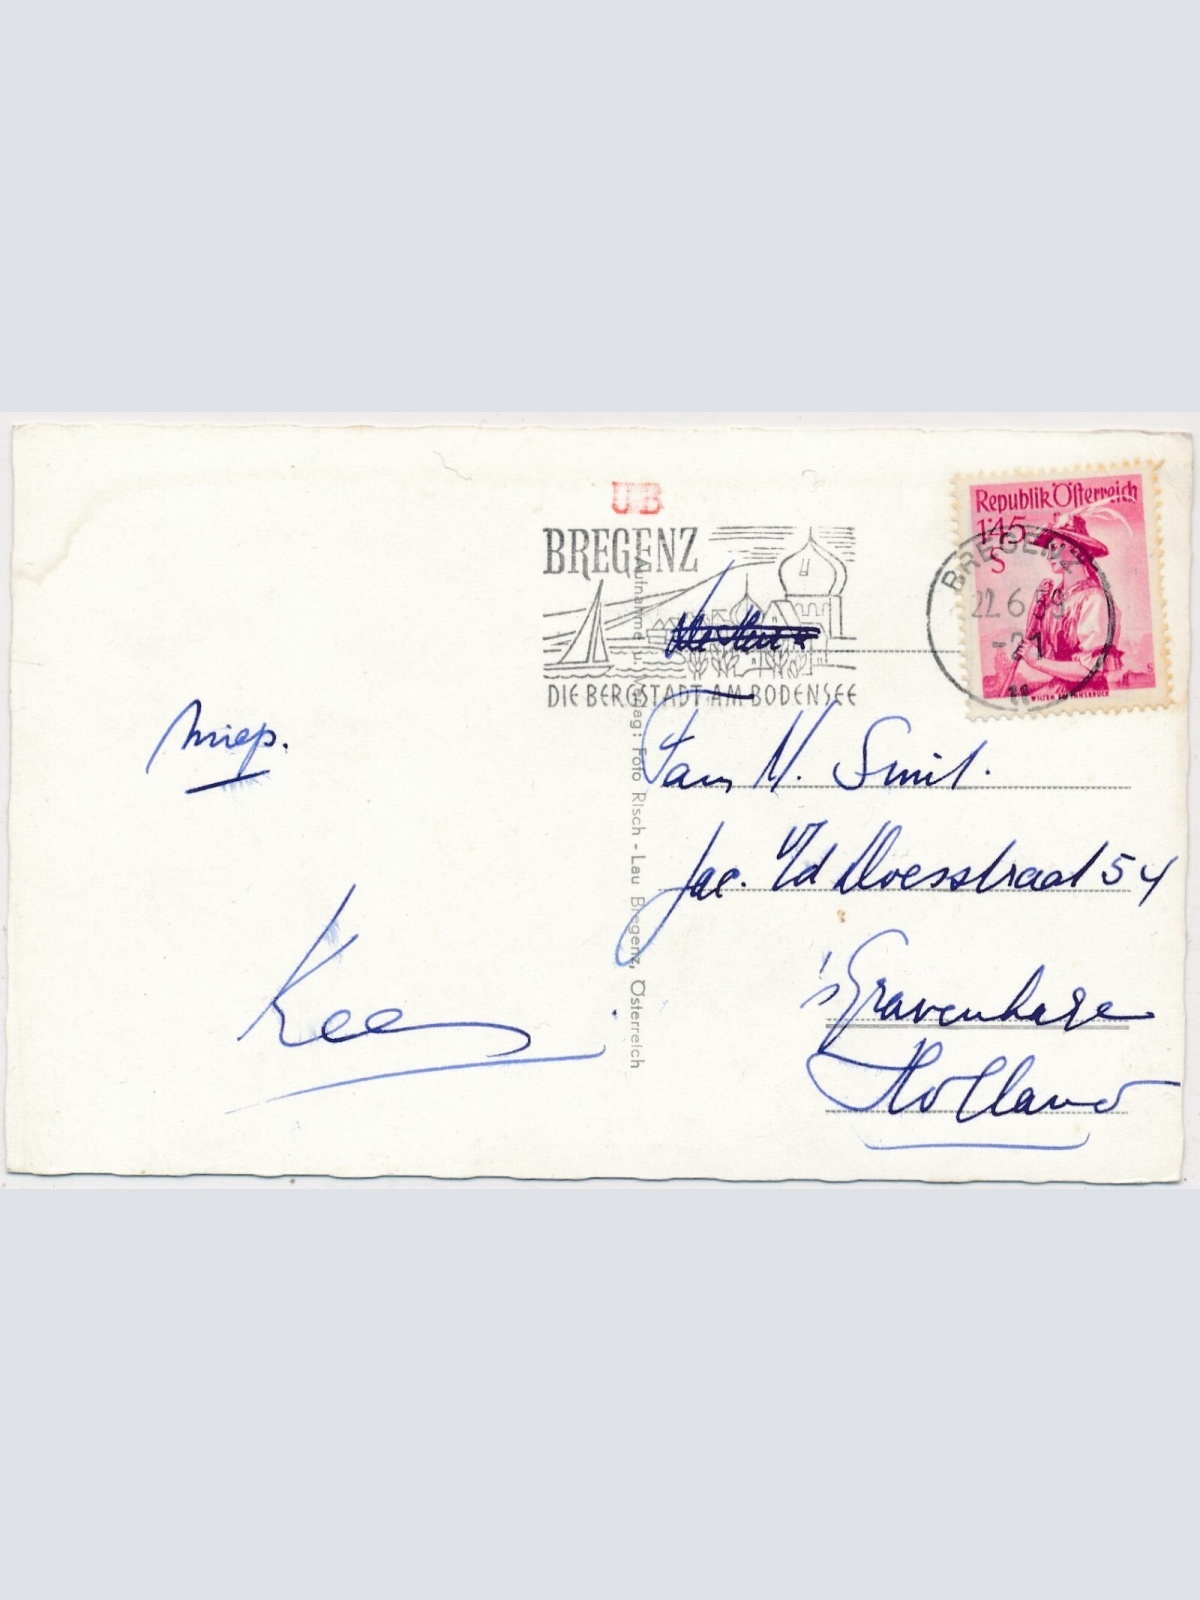 UB
BREGENZ
DIE BERGSTADT AM BODENSEE
Republik Österreich
1'45
S
WILTEN BEI INNSBRUCK
BREGENZ
22.6.59
-21
Miep.
Kees
Fam N. Smit.
Jac. v/d Doesstraat 54
's Gravenhage
Holland
Aufnahme u. Verlag: Foto Risch - Lau Bregenz, Österreich